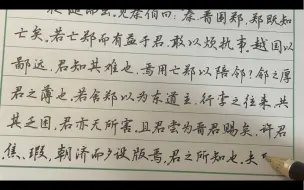 夜缒而出。见秦伯曰：秦晋围郑，郑既知
亡矣。若亡郑而有益于君，敢以烦执事。越国以
鄙远，君知其难也，焉用亡郑以陪邻？邻之厚，
君之薄也。若舍郑以为东道主，行李之往来，共
其乏困，君亦无所害。且君尝为晋君赐矣，许君
焦、瑕，朝济而夕设版焉，君之所知也。夫